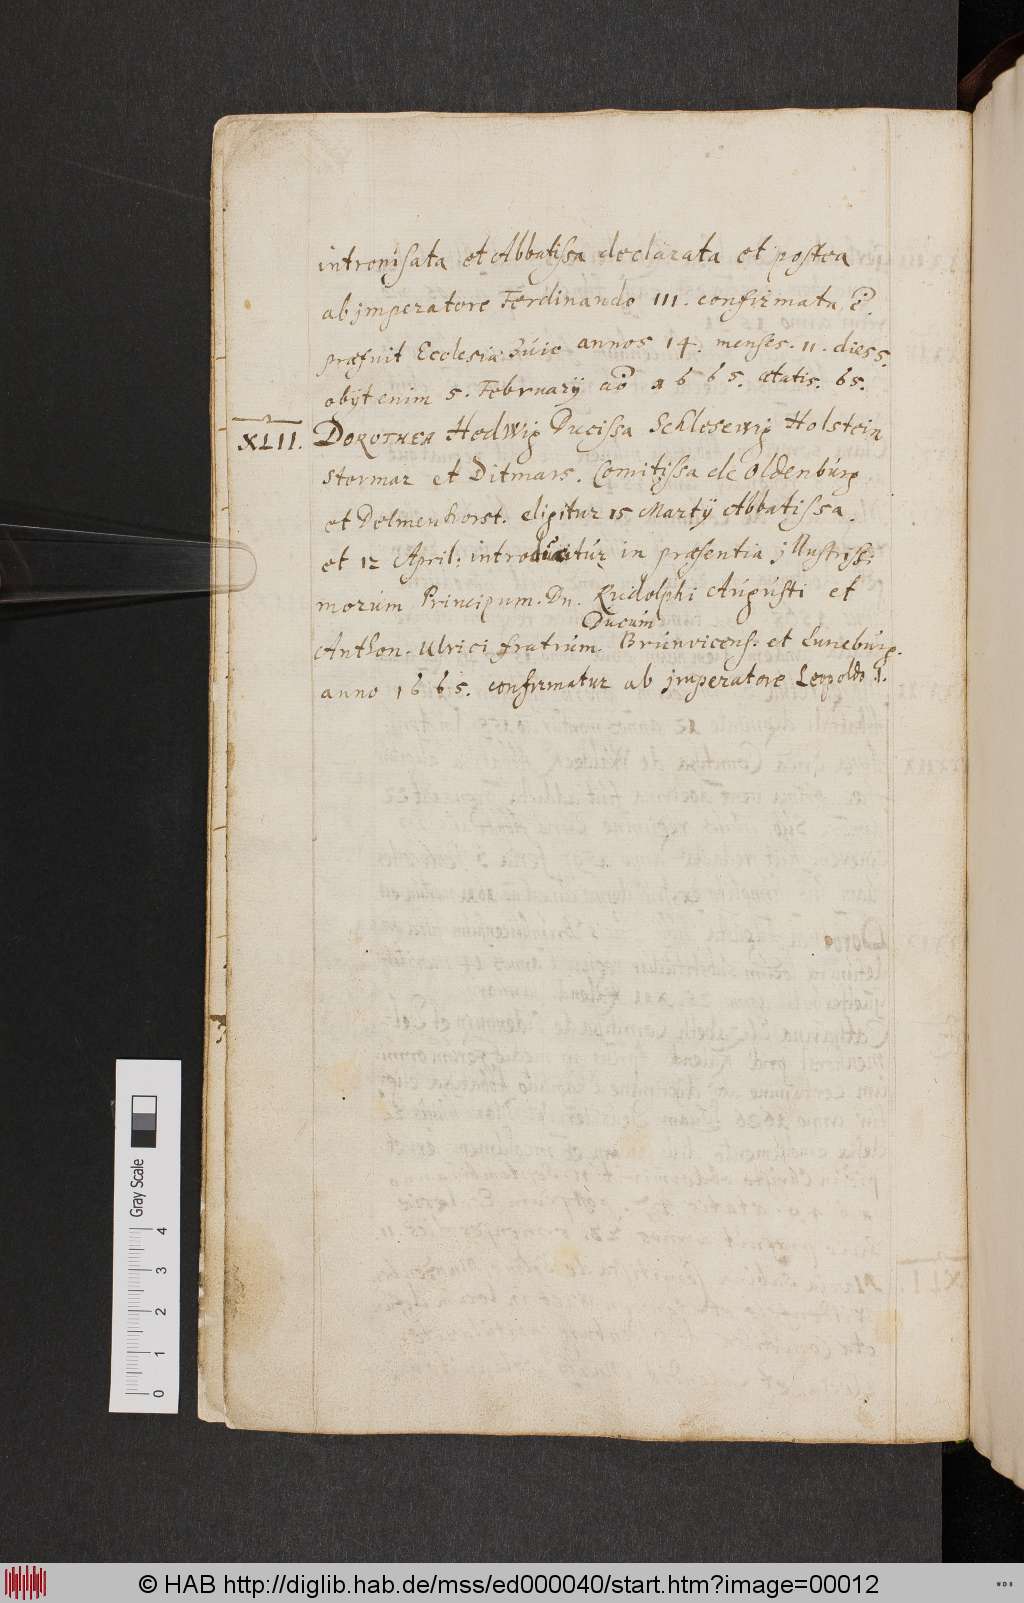 intronisata et Abbatissa declarata et postea
ab jmperatore Ferdinando III. confirmata, è.
præfuit Ecclesiæ húic annos 14. menses. 11. dies 5.
obÿt enim 5. Februarÿ aō 1665. ætatis. 65.
XLII. DOROTHEA Hedwig Ducissa Schleswig Holstein
stormar et Ditmars. Comitissa de Oldenbúrg
et Delmenhorst. eligitur 15 Martÿ Abbatissa.
et 12 April: introducitúr in præsentia jllustriss:
morúm Principum. Dn. Rudolphi Aúgústi et
Ducúm
Anthon. Ulrici fratrúm. Brúnvicens: et Lunebúrg.
anno 1665. confirmatur ab jmperatore Leopoldo I.
Gray Scale
4
3
2
1
0
© HAB http://diglib.hab.de/mss/ed000040/start.htm?image=00012